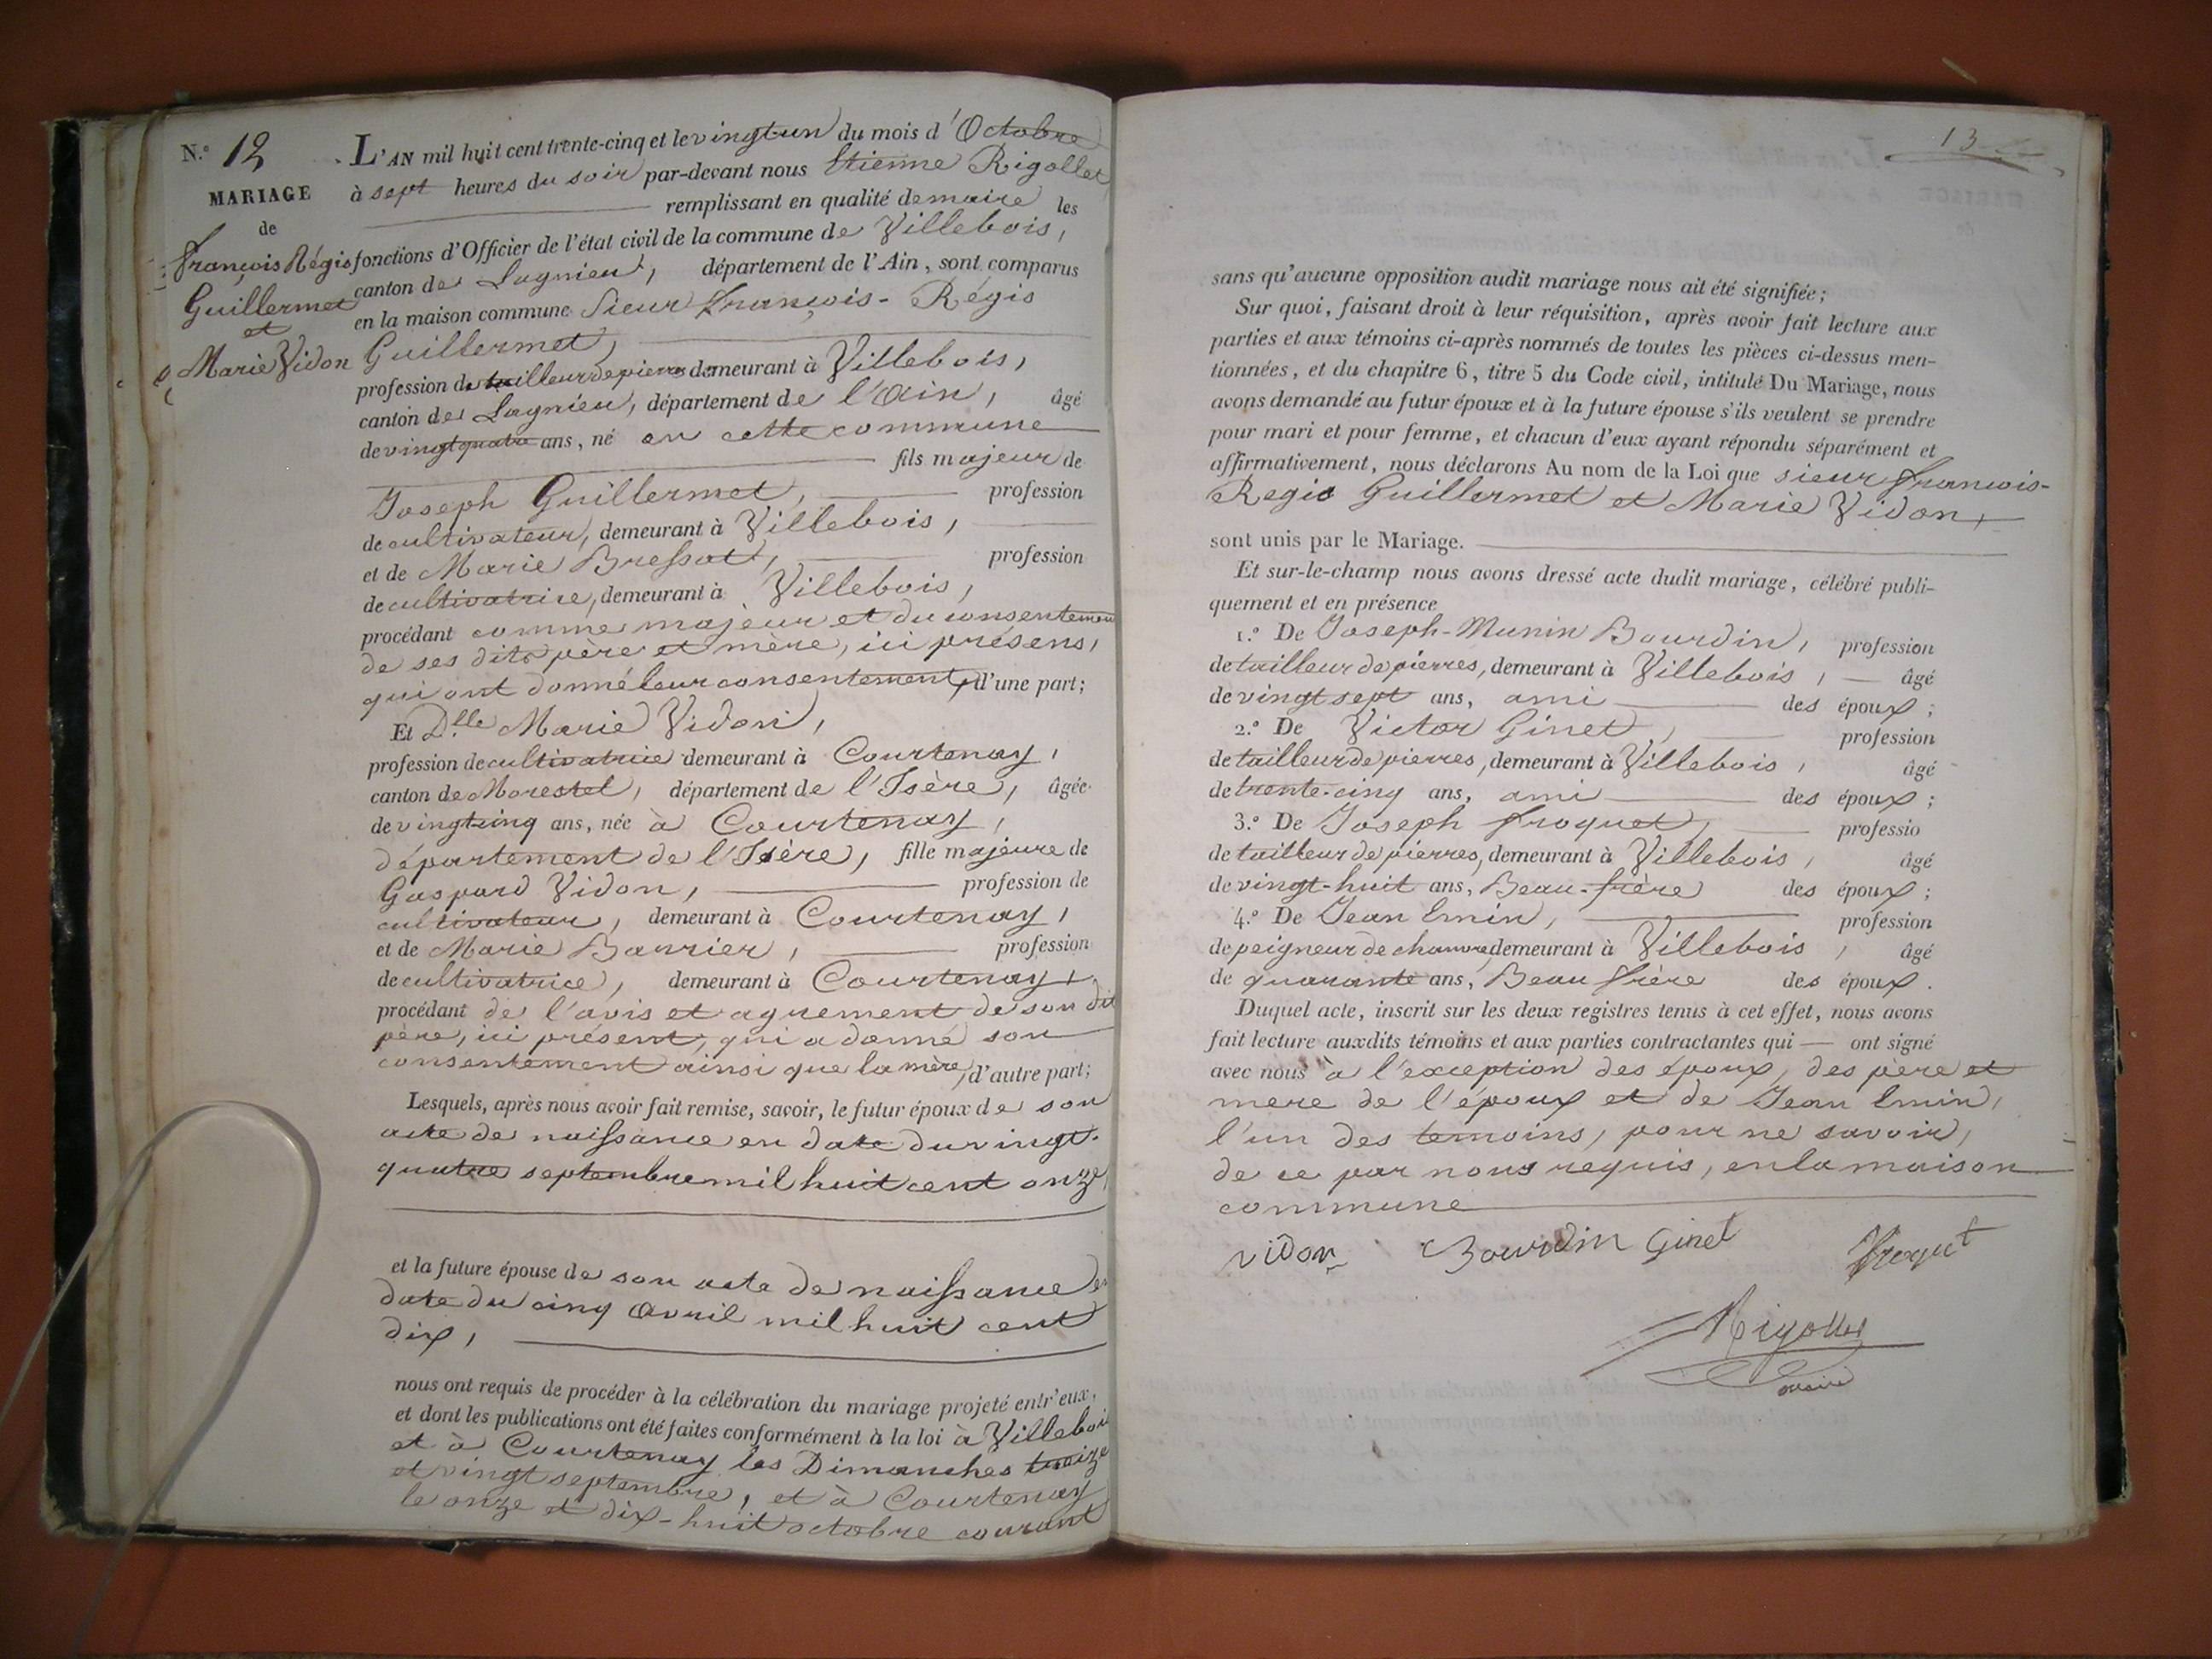 N.º 12
MARIAGE
de
François Régis
Guillermet
et
Marie Vidon
L'AN mil huit cent trente-cinq et le vingt un du mois d'Octobre
à sept heures du soir par-devant nous Etienne Rigollet
remplissant en qualité de maire les
fonctions d'Officier de l'état civil de la commune de Villebois,
canton de Lagnieu, département de l'Ain, sont comparus
en la maison commune Sieur François-Régis
Guillermet,
profession de tailleur de pierres demeurant à Villebois,
canton de Lagnieu, département de l'Ain, âgé
de vingt quatre ans, né en cette commune
fils majeur de
Joseph Guillermet, profession
de cultivateur, demeurant à Villebois,
et de Marie Bressot, profession
de cultivatrice, demeurant à Villebois,
procédant comme majeur et du consentement
de ses dits père et mère, ici présens,
qui ont donné leur consentement, d'une part;
Et D.lle Marie Vidon,
profession de cultivatrice demeurant à Courtenay,
canton de Morestel, département de l'Isère, âgée
de vingt cinq ans, née à Courtenay,
département de l'Isère, fille majeure de
Gaspard Vidon, profession de
cultivateur, demeurant à Courtenay,
et de Marie Banrier, profession
de cultivatrice, demeurant à Courtenay,
procédant de l'avis et agrement de son dit
père, ici présent, qui a donné son
consentement ainsi que la mère, d'autre part;
Lesquels, après nous avoir fait remise, savoir, le futur époux de son
acte de naissance en date du vingt-
quatre septembre mil huit cent onze,
et la future épouse de son acte de naissance en
date du cinq Avril mil huit cent
dix,
nous ont requis de procéder à la célébration du mariage projeté entr'eux,
et dont les publications ont été faites conformément à la loi à Villebois
et à Courtenay les Dimanches treize
et vingt septembre, et à Courtenay
le onze et dix-huit octobre courant
13
sans qu'aucune opposition audit mariage nous ait été signifiée;
Sur quoi, faisant droit à leur réquisition, après avoir fait lecture aux
parties et aux témoins ci-après nommés de toutes les pièces ci-dessus men-
tionnées, et du chapitre 6, titre 5 du Code civil, intitulé Du Mariage, nous
avons demandé au futur époux et à la future épouse s'ils veulent se prendre
pour mari et pour femme, et chacun d'eux ayant répondu séparément et
affirmativement, nous déclarons Au nom de la Loi que sieur François-
Regis Guillermet et Marie Vidon,
sont unis par le Mariage.
Et sur-le-champ nous avons dressé acte dudit mariage, célébré publi-
quement et en présence
1.º De Joseph-Munin Bourdin, profession
de tailleur de pierres, demeurant à Villebois, âgé
de vingt sept ans, ami des époux;
2.º De Victor Ginet, profession
de tailleur de pierres, demeurant à Villebois, âgé
de trente-cinq ans, ami des époux;
3.º De Joseph Froquet, professio
de tailleur de pierres, demeurant à Villebois, âgé
de vingt-huit ans, Beau-frère des époux;
4.º De Jean Emin, profession
de peigneur de chanvre, demeurant à Villebois, âgé
de quarante ans, Beau frère des époux.
Duquel acte, inscrit sur les deux registres tenus à cet effet, nous avons
fait lecture auxdits témoins et aux parties contractantes qui — ont signé
avec nous à l'exception des époux, des père et
mere de l'époux et de Jean Emin,
l'un des temoins, pour ne savoir,
de ce par nous requis, en la maison
commune
vidon Bourdin Ginet Froquet
Rigollet
maire